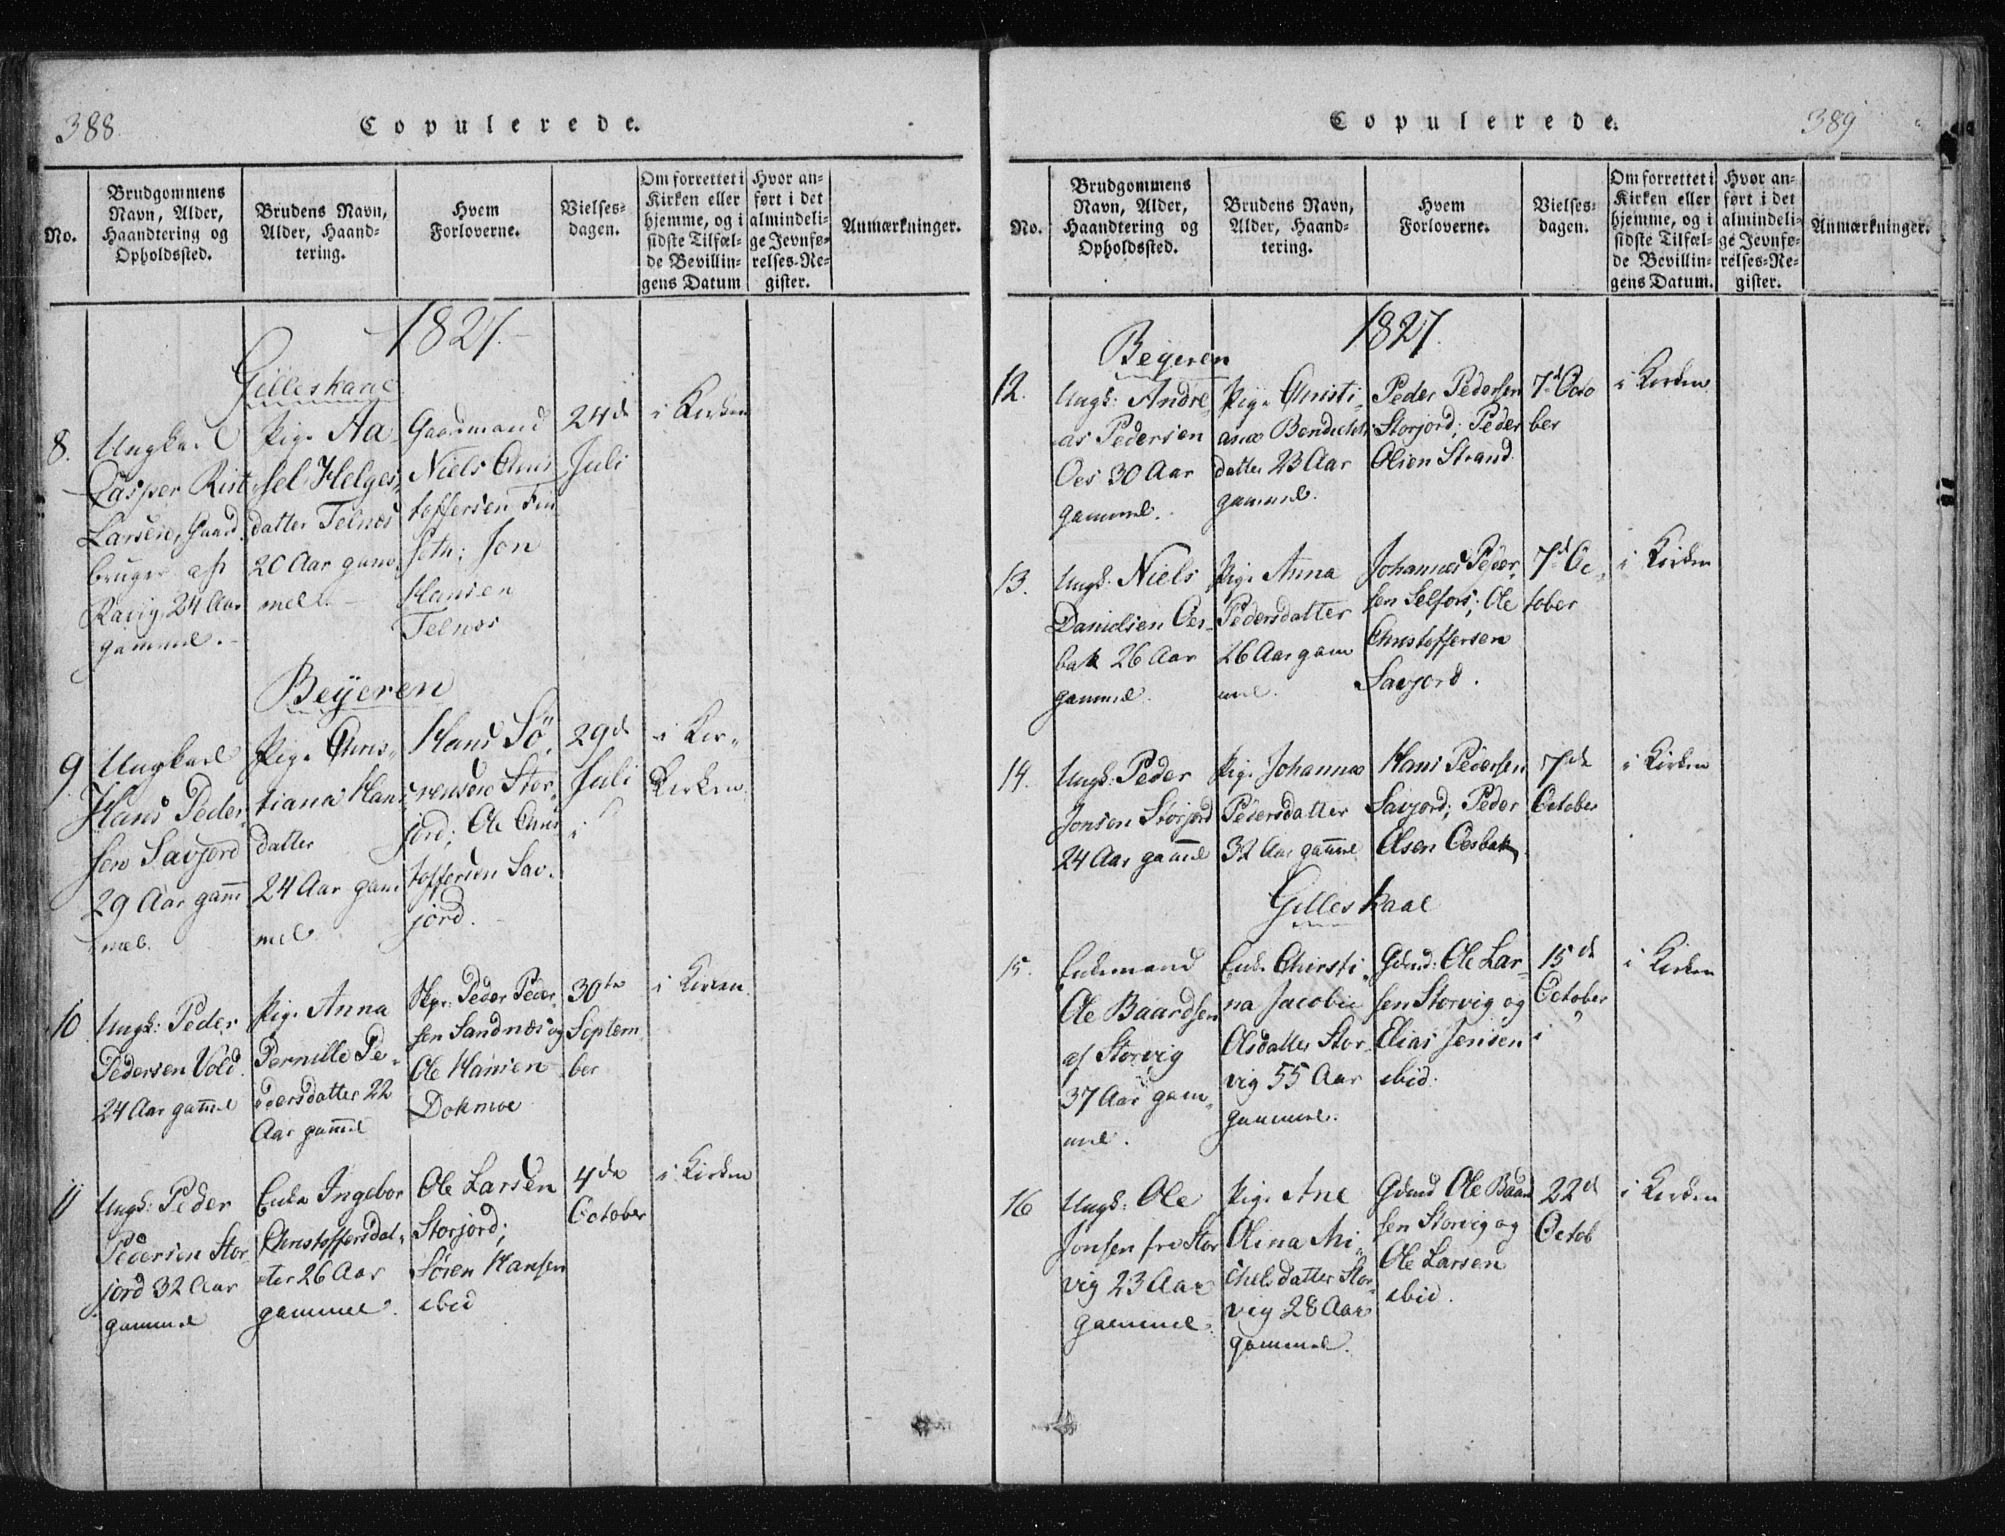 388.
Copulerede.
No.
Brudgommens Navn, Alder, Haandtering og Opholdssted.
Brudens Navn, Alder, Haandtering.
Hvem Forloverne.
Vielsesdagen.
Om forrettet i Kirken eller hjemme, og i sidste Tilfælde Bevillingens Datum
Hvor anført i det almindelige Jevnførelses-Register.
Anmærkninger.
1827.
Gilleskaal
8.
Ungkarl
Casper Rist
Larsen, Gaard
bruger
24 Aar
gammel.
Pige Aa„
sel Helges„
datter Telnæs
20 Aar gam„
mel.
Gaardmand
Niels Chris
toffersen
Jon
Hansen
Telnæs
24de
Juli
i Kirken
Beyeren
9
Ungkarl
Hans Peder„
sen Savjord
29 Aar gam̅
mel.
Pige Chris„
tiana Hans
datter
24 Aar gam
mel
Hans Sö„
rensen Stor„
jord; Ole Chris
toffersen Sav„
jord.
29de
Juli
i Kir„
Kirken
10
Ungk: Peder
Pedersen Vold
24 Aar gam̅el
Pige Anna
Pernille Pe„
dersdatter 22
Aar gam̅el
Peder Peder„
sen Sandnæs og
Ole Hansen
Dokmoe
30te
Septem„
ber
i Kirken
11
Ungk: Peder
Pedersen Stor„
jord 32 Aar
gammel
Enke Ingebor
Christoffersdat„
ter 26 Aar
gammel.
Ole Larsen
Storjord;
Sören Hansen
ibid
4de
October
i Kirken
Copulerede.
389
No.
Brudgommens Navn, Alder, Haandtering og Opholdssted.
Brudens Navn, Alder, Haandtering.
Hvem Forloverne.
Vielsesdagen.
Om forrettet i Kirken eller hjemme, og i sidste Tilfælde Bevillingens Datum.
Hvor anført i det almindelige Jevnførelses-Register.
Anmærkninger.
1827.
Beyeren
12.
Ungk: Andre„
as Pedersen
Oes 30 Aar
gammel.
Pige Christi„
ana Bendichts
datter 23 Aar
gammel.
Peder Pedersen
Storjord; Peder
Olsen Strand.
7de Octo
ber
i Kirken
13.
Ungk: Niels
Danielsen Oes„
bak 26 Aar
gammel.
Pige Anna
Pedersdatter
26 Aar gam
mel.
Johannes Peder„
sen Selfors; Ole
Christoffersen
Savjord.
7de Oc„
tober
i Kirken
14.
Ungk: Peder
Jonsen Storjord
24 Aar gam̅el
Pige Johanna
Pedersdatter
32 Aar gam̅el
Hans Pedersen
Savjord; Peder
Olsen Oesbak
7de
October
i Kirken
Gilleskaal
15.
Enkemand
Ole Baardsen
af Storvig
37 Aar gam„
mel.
Enke Christi„
na Jacobie
Olsdatter Stor„
vig 55 Aar
gammel.
Ole Lar„
sen Storvig og
Elias Jensen
ibid.
15de
October
i Kirken
16
Ungk: Ole
Jonsen fra Stor
vig 23 Aar
gammel.
Pige Ane
Olina Mi„
chelsdatter Stor„
vig 28 Aar
gammel.
Ole Baard
sen Storvig og
Ole Larsen
ibid.
22de
Octob
i Kirken